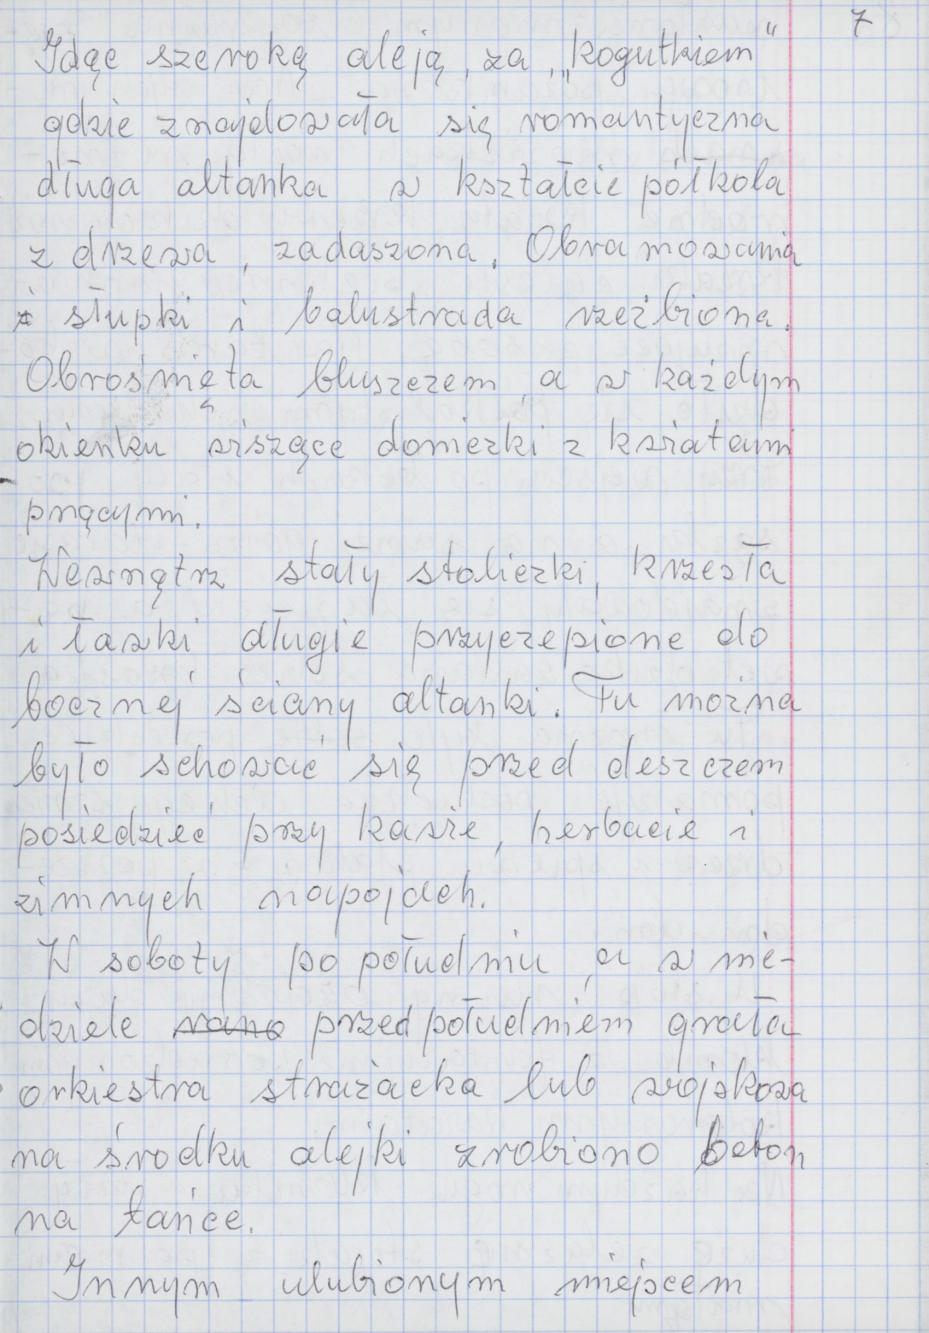 7
Idąc szeroką aleją, za „kogutkiem"
gdzie znajdowała się romantyczna
długa altanka w kształcie półkola
z drzewa, zadaszona. Obramowania
i słupki i balustrada rzeźbiona.
Obrośnięta bluszczem, a w każdym
okienku wiszące doniczki z kwiatami
pnącymi.
Wewnątrz stały stoliczki, krzesła
i ławki długie przyczepione do
bocznej ściany altanki. Tu można
było schować się przed deszczem
posiedzieć przy kawie, herbacie i
zimnych napojach.
W soboty po południu, a w nie-
dziele rano przed południem grała
orkiestra strażacka lub wojskowa
na środku alejki zrobiono beton
na tańce.
Innym ulubionym miejscem